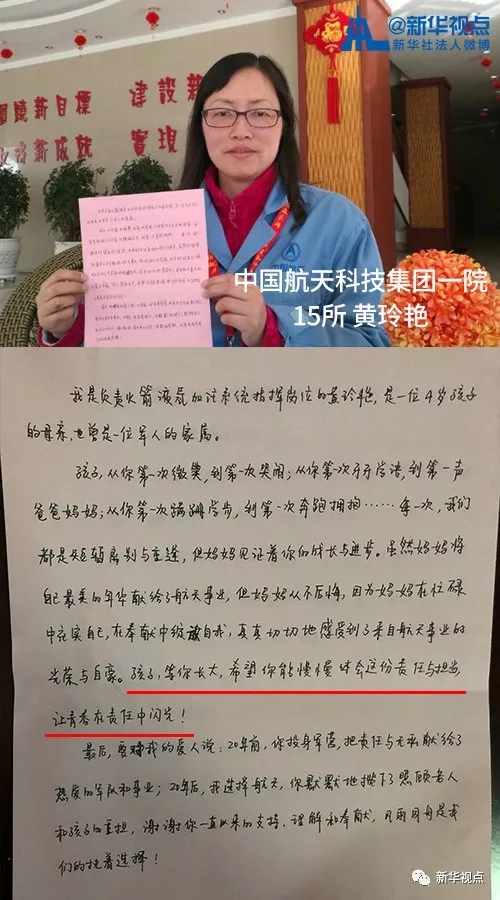 @新华视点
新华社法人微博
建设新
實現
中国航天科技集团一院
15所 黄玲艳
我是负责火箭液氢加注系统指挥岗位的黄玲艳,是一位4岁孩子
的母亲,也曾是一位军人的家属。
孩子,从你第一次微笑,到第一次哭闹;从你第一次牙牙学语,到第一声
爸爸妈妈;从你第一次蹒跚学步,到第一次奔跑拥抱……每一次,我们
都是短暂离别与重逢,但妈妈见证着你的成长与进步。虽然妈妈将
自己最美的年华献给了航天事业,但妈妈从不后悔,因为妈妈在忙碌
中充实自己,在奉献中绽放自我,真真切切地感受到了来自航天事业的
光荣与自豪。孩子,等你长大,希望你能慢慢体会这份责任与担当,
让青春在责任中闪光!
最后,要对我的爱人说:20年前,你投身军营,把责任与无私献给了
热爱的军队和事业;20年后,我选择航天,你默默地揽下了照顾老人
和孩子的重担,谢谢你一直以来的支持、理解和奉献,风雨同舟是我
们的执着选择!
新华视点